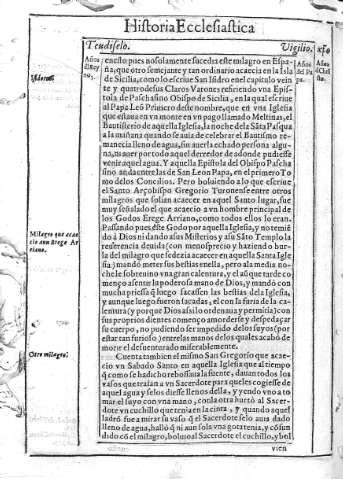 Historia Ecclesiastica
Teudiselo. Vigilio.
Años del Rey no.
Años del Pa pa.
Años de Christo.
en esto pues no solamente sucedia este milagro en Espa-
ña, que otro semejante y tan ordinario acaecia en la Isla
de Sicilia, como lo escriue San Isidro en el capitulo vein
te y quatro de sus Claros Varones refiriendo vna Epis-
tola de Paschasino Obispo de Sicilia, en la qual escriue
al Papa Leõ Primero deste nombre, que en vna Iglesia
que estaua en vn monte en vn pago llamado Meltinas, el
Bautisterio de aquella Iglesia, la noche dela Sãta Pasqua
a la mañana quando se auia de celebrar el Bautismo re-
manecia lleno de agua, sin auerla echado persona algu-
na, ni auer por todo aquel derredor de donde pudiesse
venir aquel agua. Y aquella Epistola del Obispo Pascha
sino anda entre las de San Leon Papa, en el primero To
mo delos Concilios. Pero boluiendo a lo que escriue
el Santo Arçobispo Gregorio Turonense entre otros
milagros que solian acaecer en aquel Santo lugar, fue
muy señalado el que acaecio a vn hombre principal de
los Godos Erege Arriano, como todos ellos lo eran.
Passando pues este Godo por aquella Iglesia, y no temiẽ
do à Dios ni dando a sus Misterios y a su Sãto Templo la
reuerencia deuida (con menosprecio y haziendo bur-
la del milagro que se dezia acaecer en aquella Santa Igle
sia) mandò meter sus bestias en ella, pero ala media no-
che le sobreuino vna gran calentura, y el aũque tarde co
menço a sentir la poderosa mano de Dios, y mandò con
mucha priessa q̃ luego sacassen las bestias dela Iglesia,
y aunque luego fueron sacadas, el con la furia de la ca-
lentura (y porque Dios assi lo ordenaua y permitia) con
sus proprios dientes començo a morderse y despedaçar
su cuerpo, no pudiendo ser impedido delos suyos (por
estar tan furioso) entre las manos delos quales acabò de
morir el desuenturado miserablemente.
Cuenta tambien el mismo San Gregorio que acae-
cio vn Sabado Santo en aquella Iglesia que al tiempo
q̃ como se ha dicho rebossaua la fuente, dauan todos los
vasos que traian a vn Sacerdote para que les cogiesse de
aquel agua y selos diesse llenos della, y yendo vno a to-
mar el suyo con vna mano, con la otra hurtò al Sacer-
dote vn cuchillo que tenia en la cinta, y quando aquel
ladrõ fue a mirar su vaso q̃ el Sacerdote selo auia dado
lleno de agua, hallò q̃ ni aun sola vna gota tenia, y cõfun
dido cõ el milagro, boluio al Sacerdote el cuchillo, y bol
vien
Isidorus.
Milagro que acae
cio a vn Erege Ar
riano.
Otro milagro.